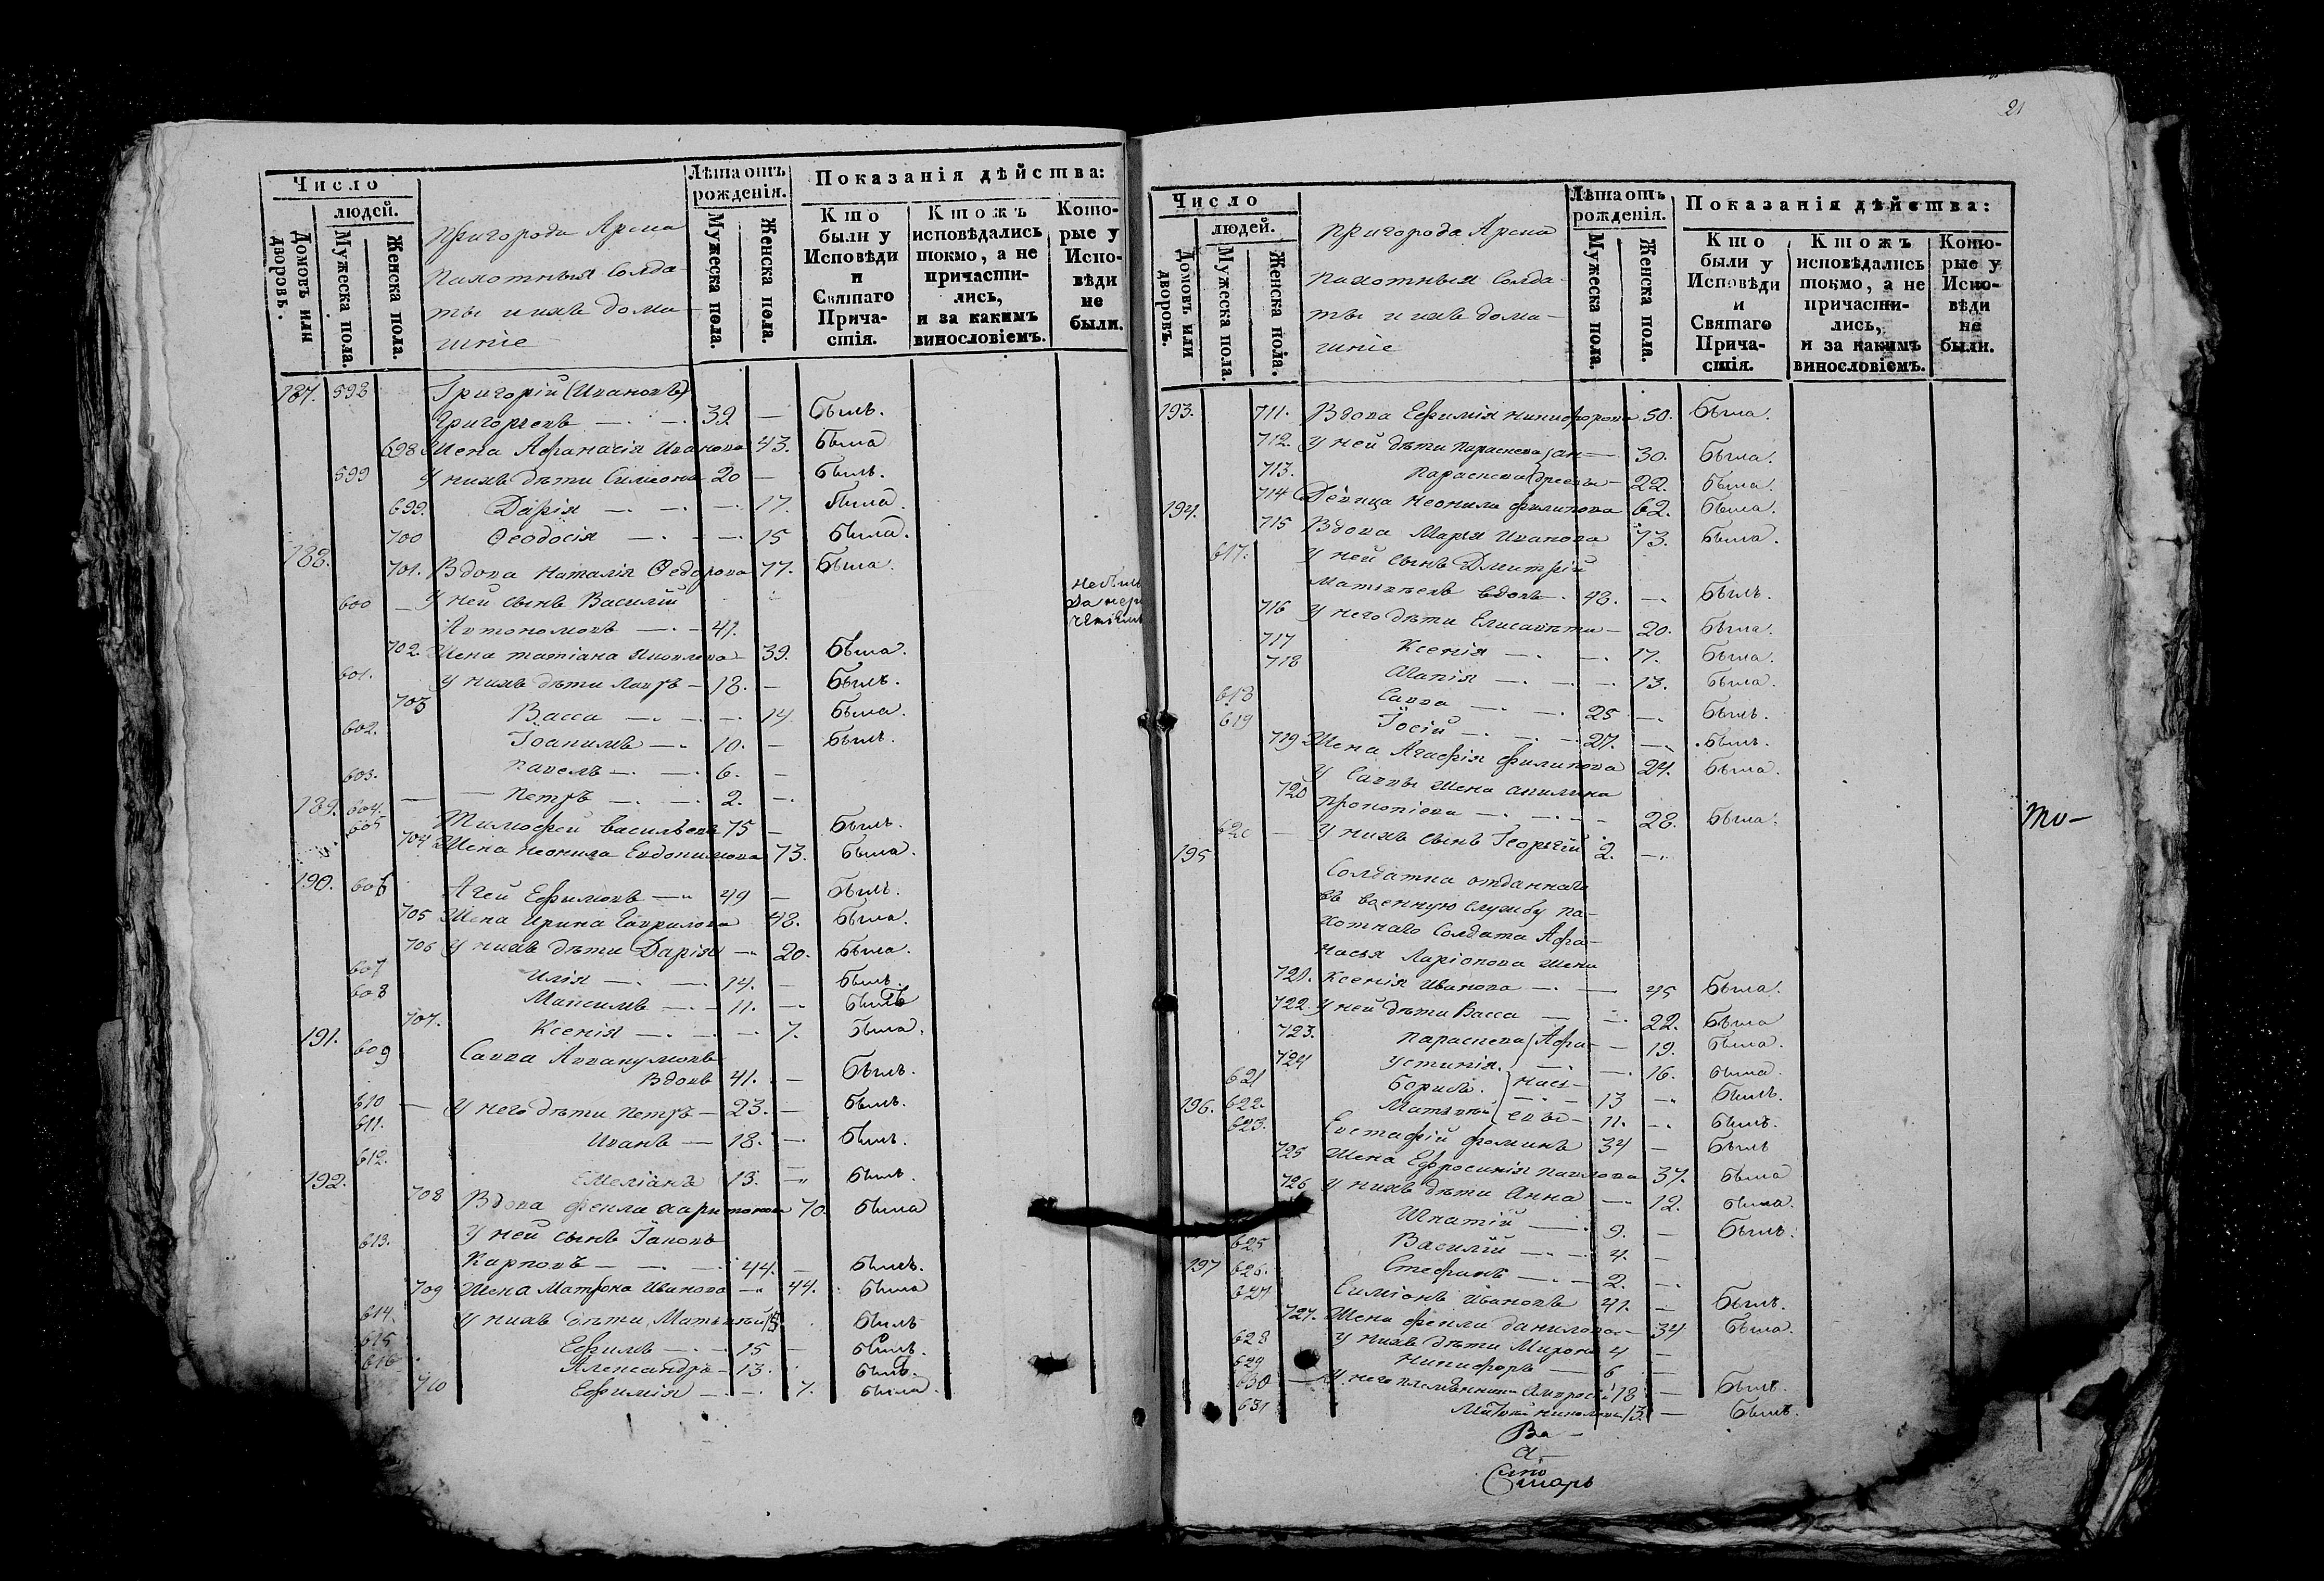 Число
людей.
Домовъ или дворовъ.
Мужеска пола.
Женска пола.
пригорода Арска
пахотныя Солда-
ты и ихъ дома-
шніе
Лѣта отъ рожденія.
Мужеска пола.
Женска пола.
Показанія дѣйства:
Кто были у Исповѣди и Святаго Прича-стія.
Ктожъ исповѣдались токмо, а не причасти-лись, и за какимъ винословіемъ.
Кото-рые у Испо-вѣди не были.
187. 598 Григорій (Ивановъ)
Григорьевъ — 39 — былъ.
698 Жена Афанасія Иванова 43. была
599 У нихъ дѣти Симеонъ 20 — былъ.
699. Дарія — 17. была.
700 Ѳеодосія — 15 была.
188. 701. Вдова Наталія Ѳедорова 77. была.
600 — У ней сынъ Василій
Автономовъ — 41. небылъ
702. Жена татіана Яковлева 39. была.
601. У нихъ дѣти Лавръ — 18. — былъ.
703 Васса — 14 была.
602. Іоакимъ — 10. — былъ.
603. павелъ — 6. —
604. — петръ — 2. —
189. 605 Тимофей васильевъ 75 — былъ.
704 Жена Неонила Евдокимова 73. была.
190. 606 Агей Ефимовъ — 49 — былъ.
705 Жена Ирина Гаврилова 48. была.
706 У нихъ дѣти Дарія — 20. была.
607 Илія — 14. — былъ.
608 Максимъ — 11. — былъ
707. Ксенія — 7. была.
191. 609 Савва Аввакумовъ
Вдовъ 41. — былъ.
610 — У него дѣти петръ — 23. — былъ.
611. Иванъ — 18. — былъ.
612. Емеліанъ 13. — былъ.
192. 708 Вдова фекла харитонова 70. была
613. У ней сынъ Іаковъ
Карповъ — 44. — былъ.
709 Жена Матрона Иванова — 44. была
614. У нихъ дѣти, Матвѣй былъ
615 Ефимъ — 15 — былъ.
616 Александръ — 13. былъ.
710 Ефимія — 7. была.
21
Число
людей.
Домовъ или дворовъ.
Мужеска пола.
Женска пола.
пригорода Арска
пахотныя Солда-
ты и ихъ дома-
шніе
Лѣта отъ рожденія.
Мужеска пола.
Женска пола.
Показанія дѣйства:
Кто были у Исповѣди и Святаго Прича-стія.
Ктожъ исповѣдались токмо, а не причасти-лись, и за какимъ винословіемъ.
Кото-рые у Испо-вѣди не были.
193. 711. Вдова Ефимія никифорова 50. была.
712. У ней дѣти параскева — 30. была.
713. параскева 22. была.
714 Дѣвица Неонила филипова 62. была.
194. 715 Вдова Марья Иванова 73. была.
617. У ней сынъ Дмитрій
Матвѣевъ вдовъ — 48. — былъ.
716 У него дѣти Елисавета — 20. была.
717 Ксенія — 17. была.
718 — 13. была.
618 Савва — 25 — былъ.
619 Іосій — 27. — былъ.
719 Жена Агафія филипова 24. была.
У Саввы жена акилина
720 прокопіева — 28. была.
620 — У нихъ сынъ Георгій 2. —
195 Солдатка отданнаго
въ военную службу па-
хотнаго Солдата Афа-
насья Ларіонова жена
721. Ксенія Иванова — 45 была.
722. У ней дѣти Васса — 22. была
723. параскева Афа- — 19. была.
724 устинія. — 16. была.
621 Борисъ. насье- — 13 — былъ.
622. Матвѣй 11. — былъ.
196. 623. Евстафій фоминъ 34 — былъ
725 Жена Ефросинія павлова 37. была
726 У нихъ дѣти Анна — 12. была.
Игнатій — 9. — былъ.
625 Василій — 4. —
626. Стефанъ — 2. —
197 627 Симіонъ Ивановъ 41. — былъ.
727. Жена фекла данилова — 34 была.
628 У нихъ дѣти Миронъ 4 —
629 Никифоръ — 6 —
630 — У него племянники 18 — былъ.
631 13. — былъ.
то-
Ва-